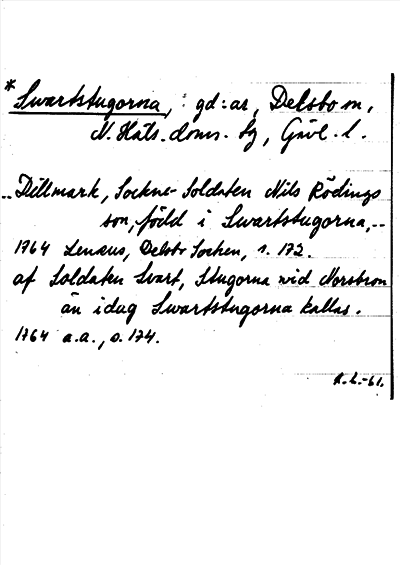 * Swartstugorna, : gd:ar, Delsbo sn,
N. Häls. doms. sg, Gävl. l.
.. Dillmark, Sockne-Soldaten Nils Rödings
son, född i Swartstugorna, ..
1764 Lenæus, Delsbo Socken, s. 172.
af Soldaten Svart, Stugorna wid Norrbron
än idag Swartstugorna kallas.
1764 a.a., s. 174.
R.L.-61.